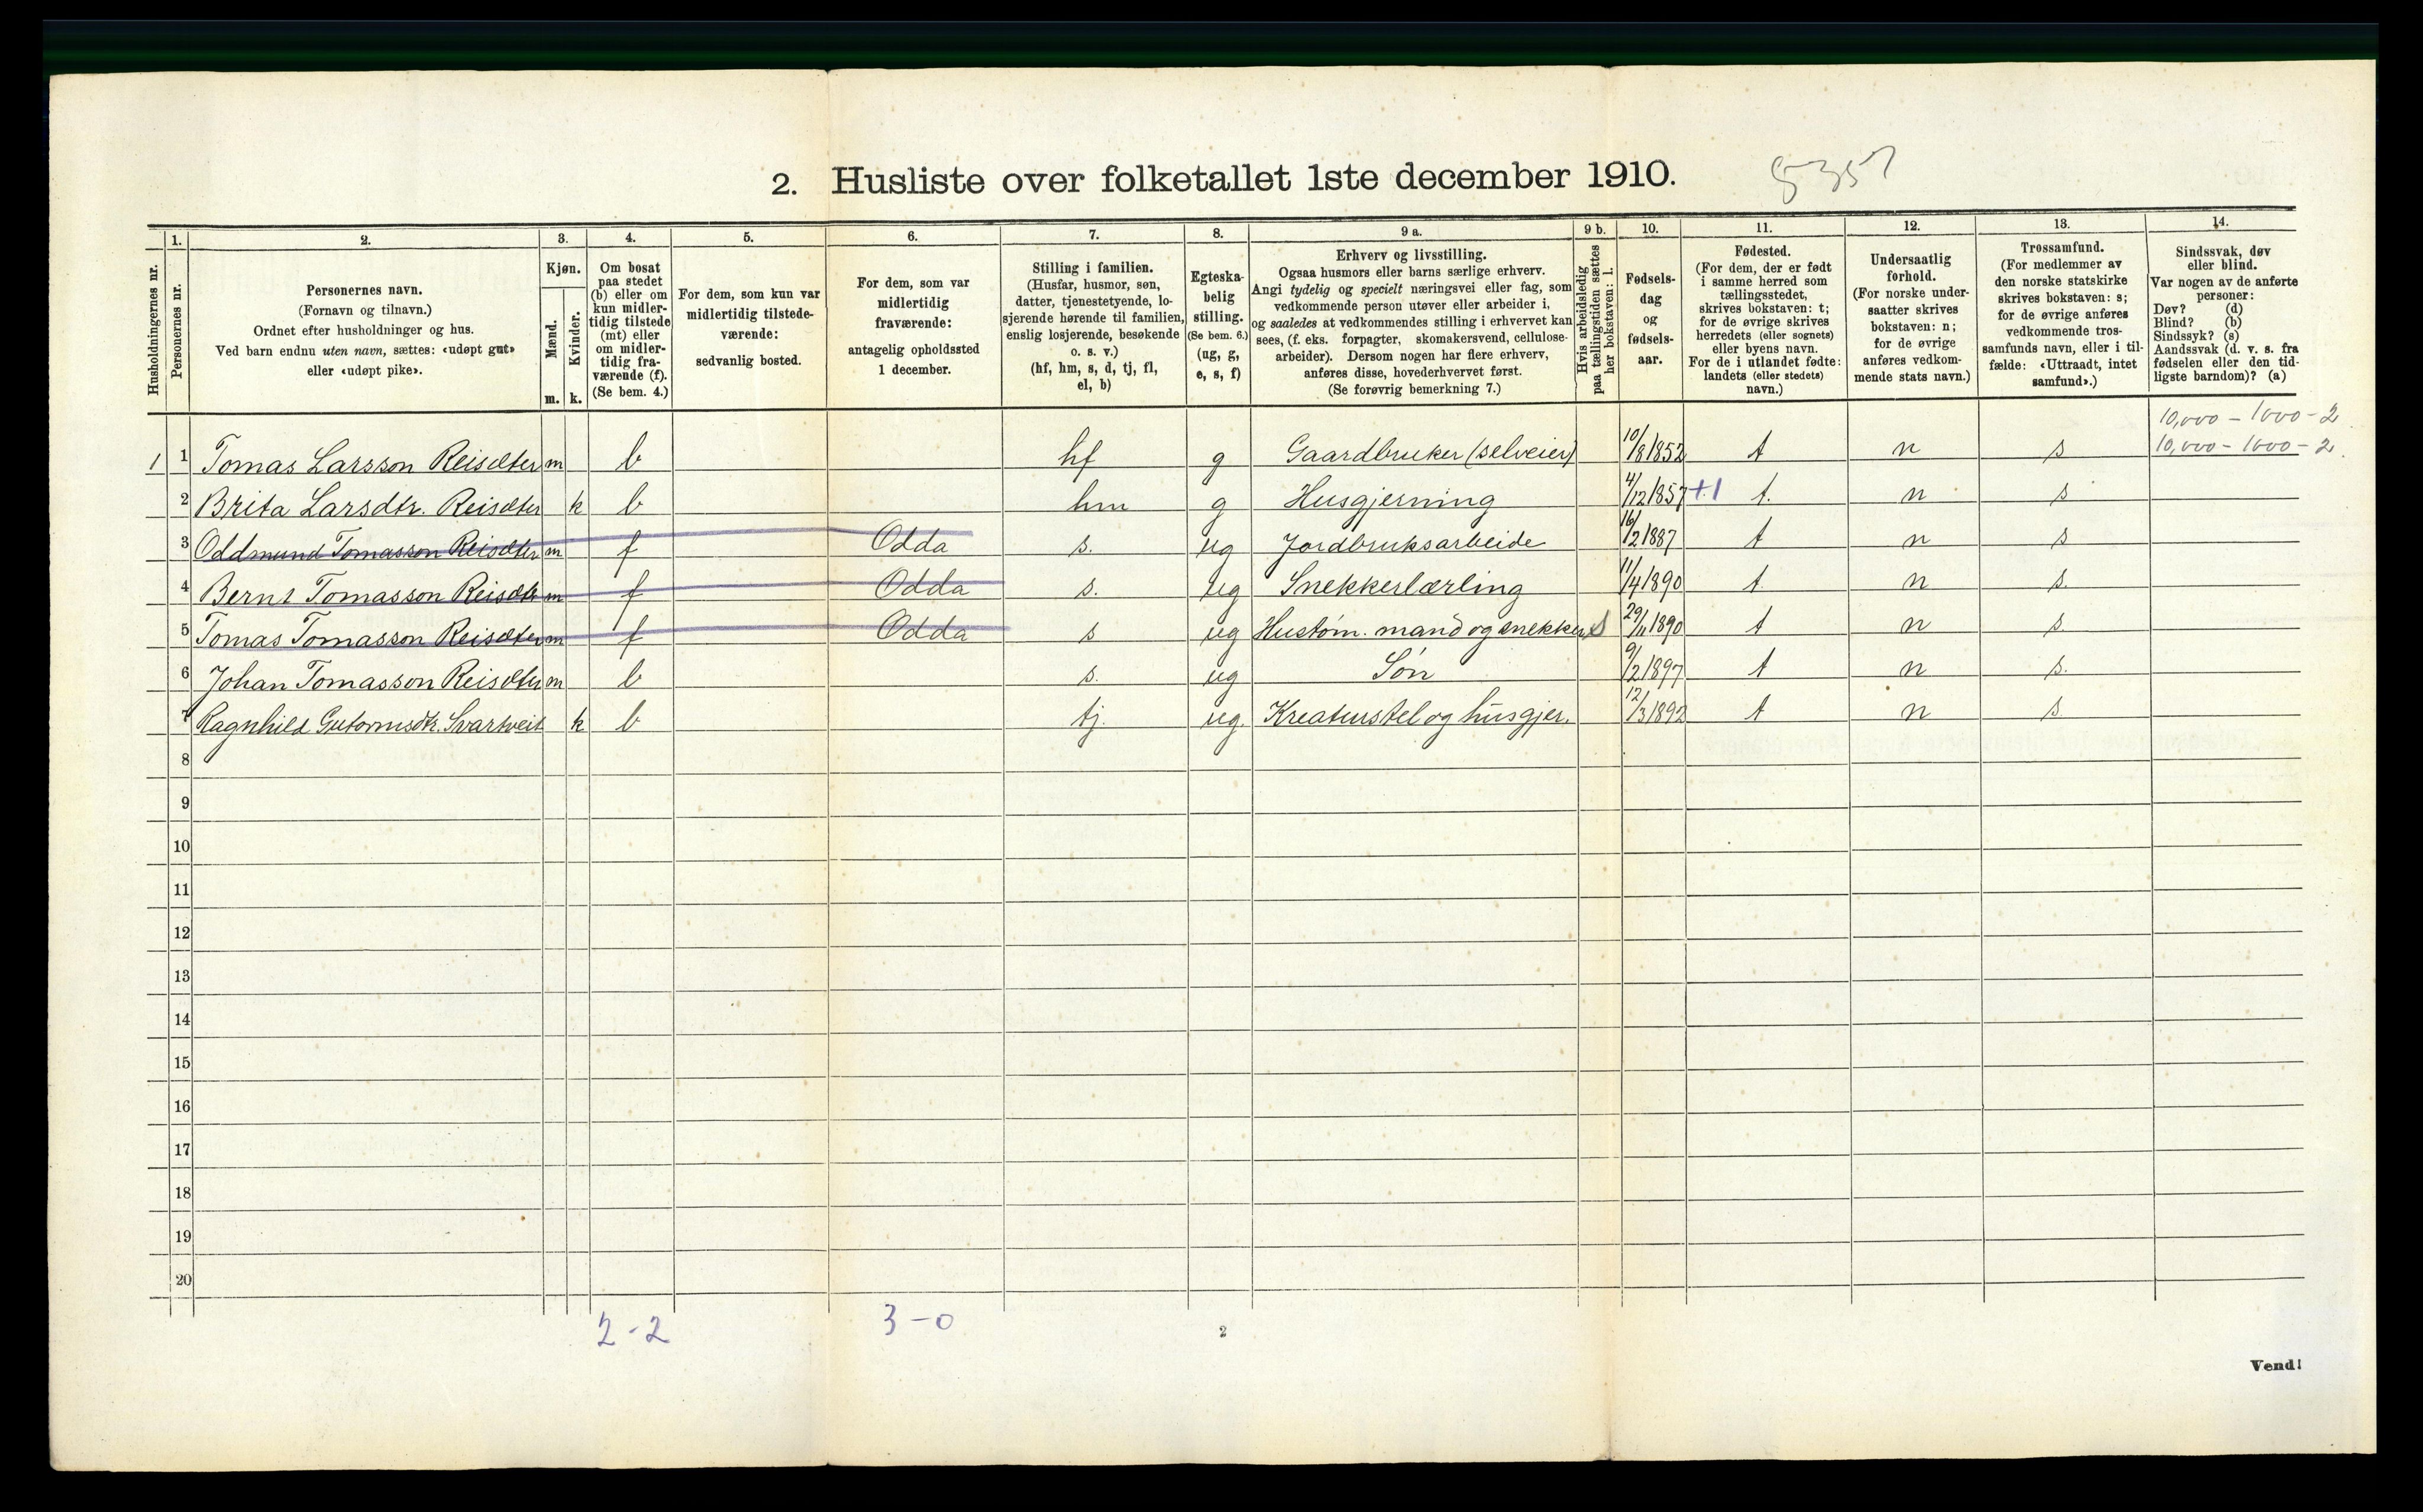 2. Husliste over folketallet 1ste december 1910.
1. 2. 3. 4. 5. 6. 7. 8. 9 a. 9 b. 10. 11. 12. 13. 14.
Husholdningernes nr.
Personernes nr.
Personernes navn.
(Fornavn og tilnavn.)
Ordnet efter husholdninger og hus.
Ved barn endnu uten navn, sættes: «udøpt gut»
eller «udøpt pike».
Kjøn.
Mænd.
Kvinder.
m. k.
Om bosat
paa stedet
(b) eller om
kun midler-
tidig tilstede
(mt) eller
om midler-
tidig fra-
værende (f).
(Se bem. 4.)
For dem, som kun var
midlertidig tilstede-
værende:
sedvanlig bosted.
For dem, som var
midlertidig
fraværende:
antagelig opholdssted
1 december.
Stilling i familien.
(Husfar, husmor, søn,
datter, tjenestetyende, lo-
sjerende hørende til familien,
enslig losjerende, besøkende
o. s. v.)
(hf, hm, s, d, tj, fl,
el, b)
Egteska-
belig
stilling.
(Se bem. 6.)
(ug, g,
e, s, f)
Erhverv og livsstilling.
Ogsaa husmors eller barns særlige erhverv.
Angi tydelig og specielt næringsvei eller fag, som
vedkommende person utøver eller arbeider i,
og saaledes at vedkommendes stilling i erhvervet kan
sees, (f. eks. forpagter, skomakersvend, cellulose-
arbeider). Dersom nogen har flere erhverv,
anføres disse, hovederhvervet først.
(Se forøvrig bemerkning 7.)
Hvis arbeidsledig
paa tællingstiden sættes
her bokstaven: l.
Fødsels-
dag
og
fødsels-
aar.
Fødested.
(For dem, der er født
i samme herred som
tællingsstedet,
skrives bokstaven: t;
for de øvrige skrives
herredets (eller sognets)
eller byens navn.
For de i utlandet fødte:
landets (eller stedets)
navn.)
Undersaatlig
forhold.
(For norske under-
saatter skrives
bokstaven: n;
for de øvrige
anføres vedkom-
mende stats navn.)
Trossamfund.
(For medlemmer av
den norske statskirke
skrives bokstaven: s;
for de øvrige anføres
vedkommende tros-
samfunds navn, eller i til-
fælde: «Uttraadt, intet
samfund».)
Sindssvak, døv
eller blind.
Var nogen av de anførte
personer:
Døv? (d)
Blind? (b)
Sindssyk? (s)
Aandssvak (d. v. s. fra
fødselen eller den tid-
ligste barndom)? (a)
10,000 - 1000 - 2
1 1 Tomas Larsson Reisæter m b hf g Gaardbruker (selveier) 10/8 1852 t n s 10,000 - 1000 - 2
2 Brita Larsdtr. Reisæter k b hm g Husgjerning 4/12 1857 +1 t. n s
3 Oddmund Tomasson Reisæter m f Odda s. ug Jordbruksarbeide 16/2 1887 t n s
4 Bernt Tomasson Reisæter m f Odda s. ug Snekkerlærling 11/4 1890 t n s.
5 Tomas Tomasson Reisæter m f Odda s ug Hustøm. mand og snekker 29/11 1890 t n s.
6 Johan Tomasson Reisæter m b s. ug Søn 9/2 1897 t n s.
7 Ragnhild Gutormsdtr. Svartveit k b tj. ug. Kreaturstel og husgjer. 12/3 1892 t n s.
8
9
10
11
12
13
14
15
16
17
18
19
20
2 - 2 3 - 0
2
Vend!